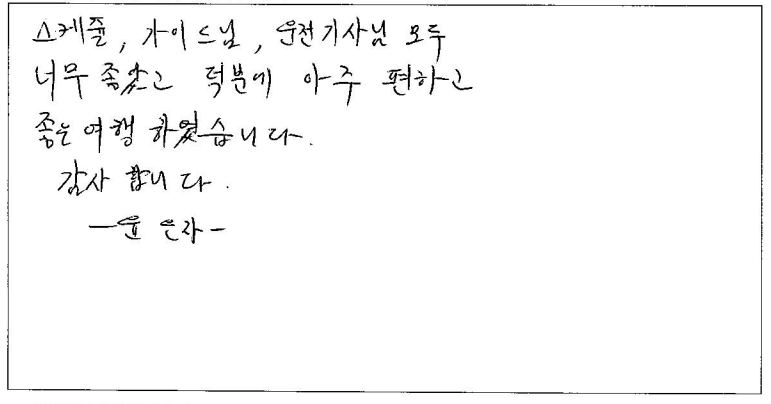 스케쥴, 가이드님, 운전기사님 모두
너무 좋았고 덕분에 아주 편하고
좋은 여행 하였습니다.
감사 합니다.
- 윤 은자 -